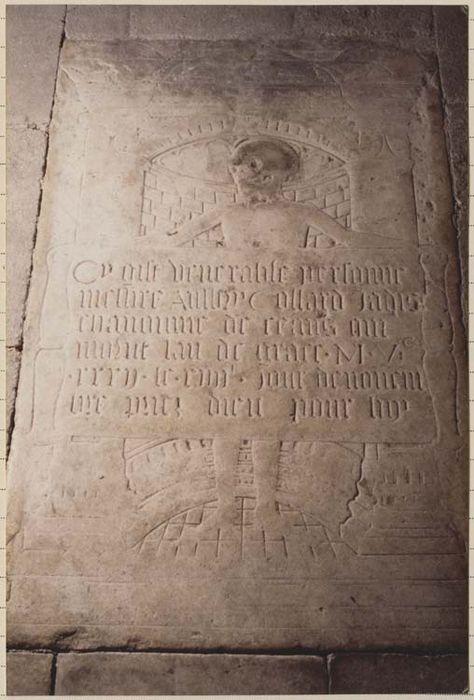 Cy gist venerable personne
messire Collard Jadis
chanoinne de ceens qui
morut lan de grace · M · Vᶜ
· xxxij · le xiiijᵉ · Jour de novem
bre priez dieu pour luy